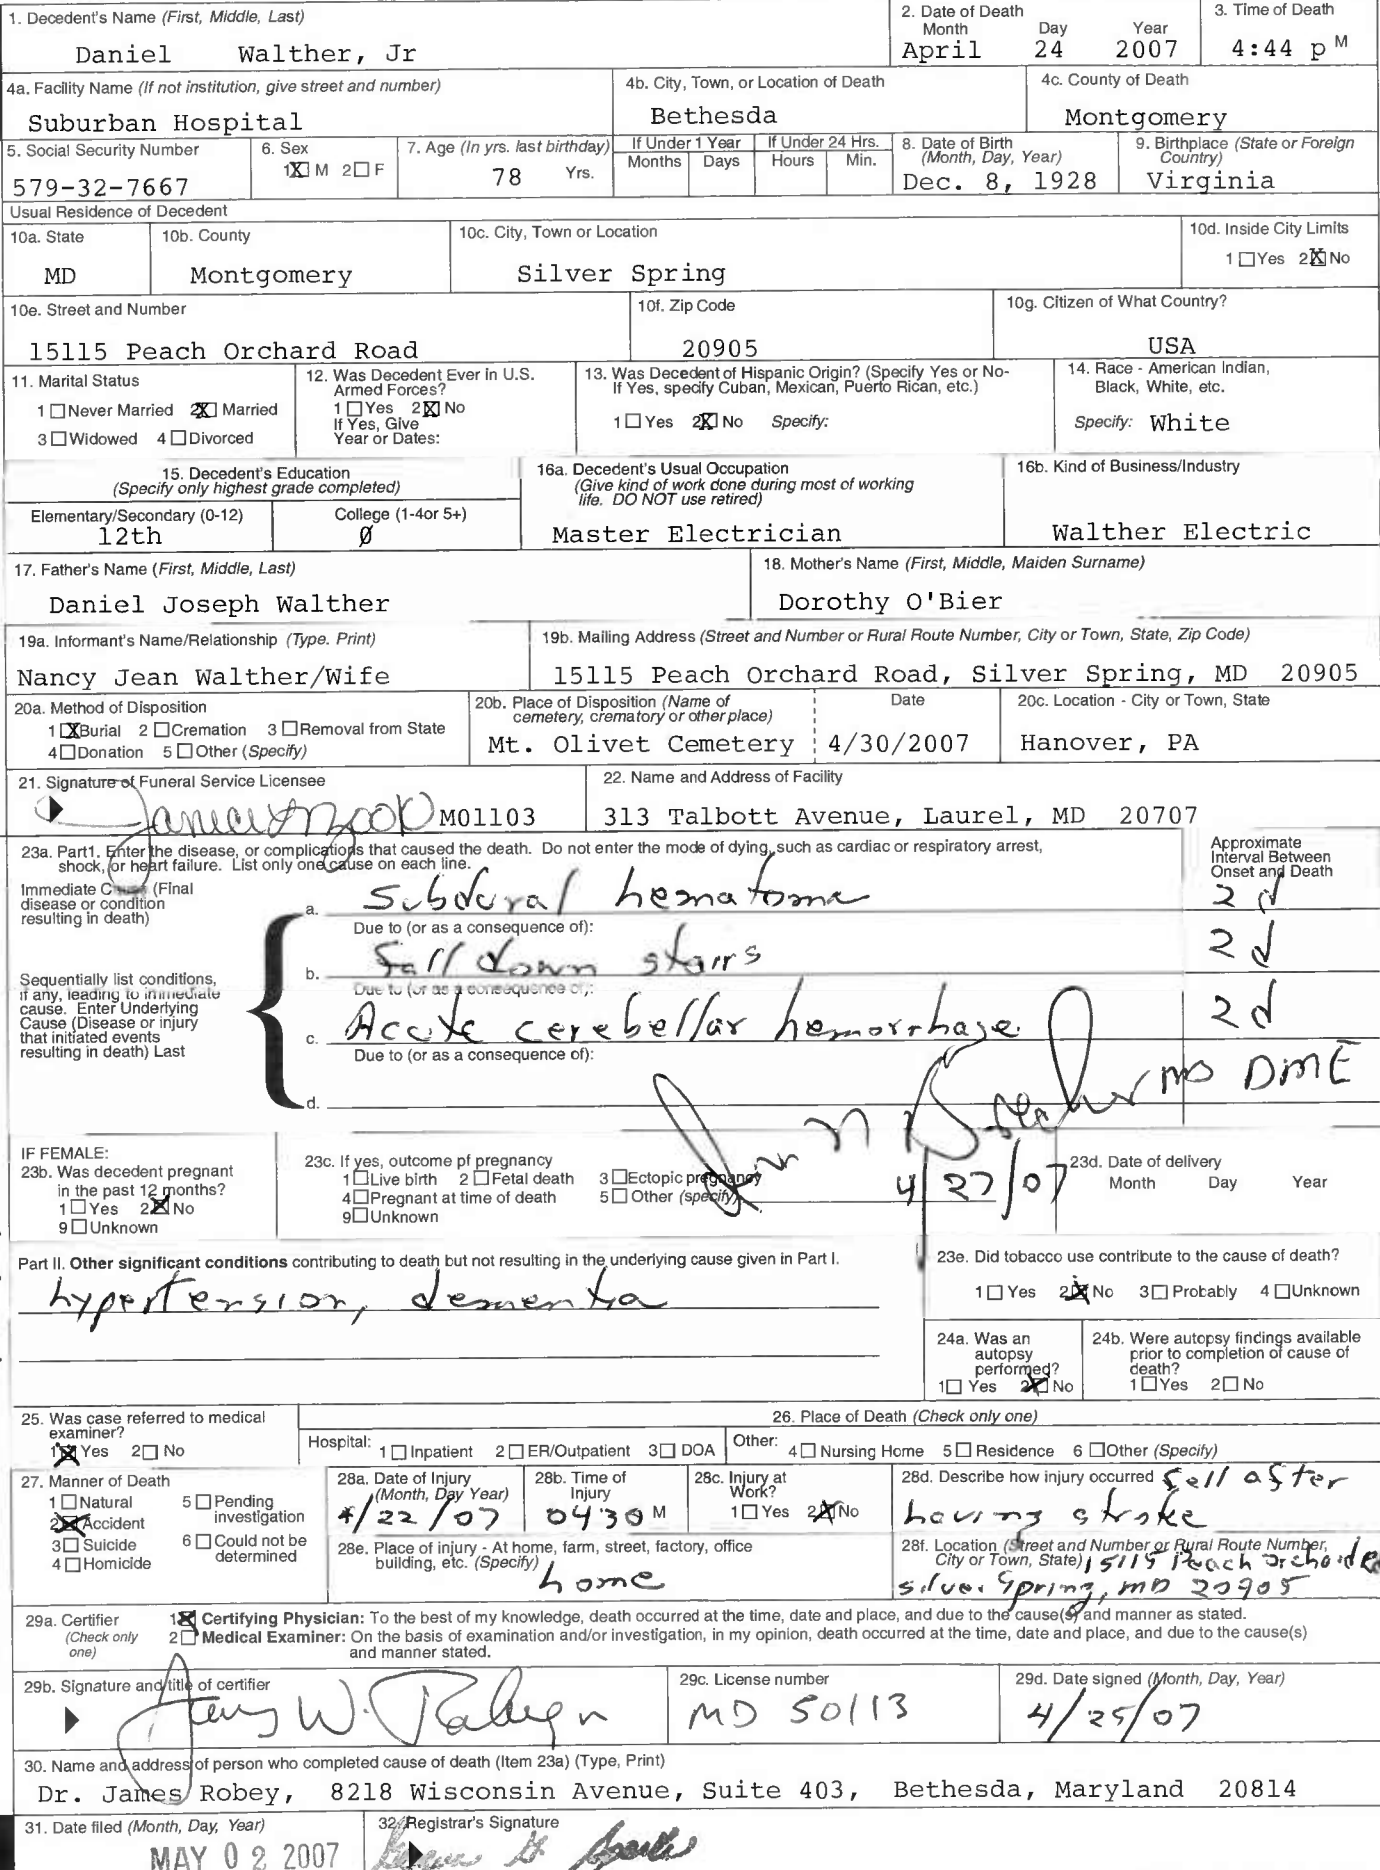 1. Decedent's Name (First, Middle, Last)
Daniel Walther, Jr
2. Date of Death
Month Day Year
April 24 2007
3. Time of Death
4:44 p M
4a. Facility Name (If not institution, give street and number)
Suburban Hospital
4b. City, Town, or Location of Death
Bethesda
4c. County of Death
Montgomery
5. Social Security Number
579-32-7667
6. Sex
1 X M 2 ☐ F
7. Age (In yrs. last birthday)
78 Yrs.
If Under 1 Year
Months Days
If Under 24 Hrs.
Hours Min.
8. Date of Birth
(Month, Day, Year)
Dec. 8, 1928
9. Birthplace (State or Foreign
Country)
Virginia
Usual Residence of Decedent
10a. State
MD
10b. County
Montgomery
10c. City, Town or Location
Silver Spring
10d. Inside City Limits
1 ☐ Yes 2 X No
10e. Street and Number
15115 Peach Orchard Road
10f. Zip Code
20905
10g. Citizen of What Country?
USA
11. Marital Status
1 ☐ Never Married 2 X Married
3 ☐ Widowed 4 ☐ Divorced
12. Was Decedent Ever in U.S.
Armed Forces?
1 ☐ Yes 2 X No
If Yes, Give
Year or Dates:
13. Was Decedent of Hispanic Origin? (Specify Yes or No-
If Yes, specify Cuban, Mexican, Puerto Rican, etc.)
1 ☐ Yes 2 X No Specify:
14. Race - American Indian,
Black, White, etc.
Specify: White
15. Decedent's Education
(Specify only highest grade completed)
Elementary/Secondary (0-12)
12th
College (1-4or 5+)
Ø
16a. Decedent's Usual Occupation
(Give kind of work done during most of working
life. DO NOT use retired)
Master Electrician
16b. Kind of Business/Industry
Walther Electric
17. Father's Name (First, Middle, Last)
Daniel Joseph Walther
18. Mother's Name (First, Middle, Maiden Surname)
Dorothy O'Bier
19a. Informant's Name/Relationship (Type. Print)
Nancy Jean Walther/Wife
19b. Mailing Address (Street and Number or Rural Route Number, City or Town, State, Zip Code)
15115 Peach Orchard Road, Silver Spring, MD 20905
20a. Method of Disposition
1 X Burial 2 ☐ Cremation 3 ☐ Removal from State
4 ☐ Donation 5 ☐ Other (Specify)
20b. Place of Disposition (Name of
cemetery, crematory or other place)
Mt. Olivet Cemetery
Date
4/30/2007
20c. Location - City or Town, State
Hanover, PA
21. Signature of Funeral Service Licensee
M01103
22. Name and Address of Facility
313 Talbott Avenue, Laurel, MD 20707
23a. Part1. Enter the disease, or complications that caused the death. Do not enter the mode of dying, such as cardiac or respiratory arrest,
shock, or heart failure. List only one cause on each line.
Approximate
Interval Between
Onset and Death
Immediate Cause (Final
disease or condition
resulting in death)
a. Subdural hematoma 2 d
Due to (or as a consequence of):
b. Fall down stairs 2 d
Due to (or as a consequence of):
Sequentially list conditions,
if any, leading to immediate
cause. Enter Underlying
Cause (Disease or injury
that initiated events
resulting in death) Last
c. Acute cerebellar hemorrhage 2 d
Due to (or as a consequence of):
d.
MD DME
4/27/07
IF FEMALE:
23b. Was decedent pregnant
in the past 12 months?
1 ☐ Yes 2 X No
9 ☐ Unknown
23c. If yes, outcome pf pregnancy
1 ☐ Live birth 2 ☐ Fetal death 3 ☐ Ectopic pregnancy
4 ☐ Pregnant at time of death 5 ☐ Other (specify)
9 ☐ Unknown
23d. Date of delivery
Month Day Year
Part II. Other significant conditions contributing to death but not resulting in the underlying cause given in Part I.
hypertension, dementia
23e. Did tobacco use contribute to the cause of death?
1 ☐ Yes 2 X No 3 ☐ Probably 4 ☐ Unknown
24a. Was an
autopsy
performed?
1 ☐ Yes 2 X No
24b. Were autopsy findings available
prior to completion of cause of
death?
1 ☐ Yes 2 ☐ No
25. Was case referred to medical
examiner?
1 X Yes 2 ☐ No
26. Place of Death (Check only one)
Hospital: 1 ☐ Inpatient 2 ☐ ER/Outpatient 3 ☐ DOA Other: 4 ☐ Nursing Home 5 ☐ Residence 6 ☐ Other (Specify)
27. Manner of Death
1 ☐ Natural 5 ☐ Pending
investigation
2 X Accident
3 ☐ Suicide 6 ☐ Could not be
determined
4 ☐ Homicide
28a. Date of Injury
(Month, Day Year)
4/22/07
28b. Time of
Injury
0430 M
28c. Injury at
Work?
1 ☐ Yes 2 X No
28d. Describe how injury occurred fell after
having stroke
28e. Place of injury - At home, farm, street, factory, office
building, etc. (Specify)
home
28f. Location (Street and Number or Rural Route Number,
City or Town, State) 15115 Peach Orchard
Silver Spring, MD 20905
29a. Certifier
(Check only
one)
1 X Certifying Physician: To the best of my knowledge, death occurred at the time, date and place, and due to the cause(s) and manner as stated.
2 ☐ Medical Examiner: On the basis of examination and/or investigation, in my opinion, death occurred at the time, date and place, and due to the cause(s)
and manner stated.
29b. Signature and title of certifier
29c. License number
MD 50113
29d. Date signed (Month, Day, Year)
4/25/07
30. Name and address of person who completed cause of death (Item 23a) (Type, Print)
Dr. James Robey, 8218 Wisconsin Avenue, Suite 403, Bethesda, Maryland 20814
31. Date filed (Month, Day, Year)
MAY 02 2007
32. Registrar's Signature